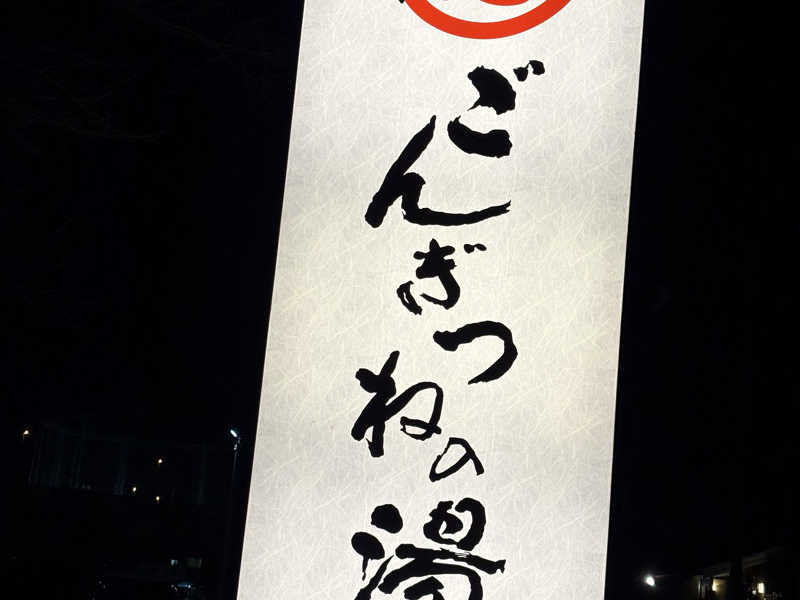 ごんぎつねの湯